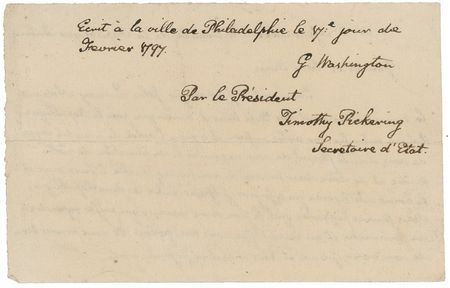 Ecrit à la ville de Philadelphie le 17.e jour de
Fevrier 1797.
G Washington
Par le Président
Timothy Pickering
Secretaire d'Etat.